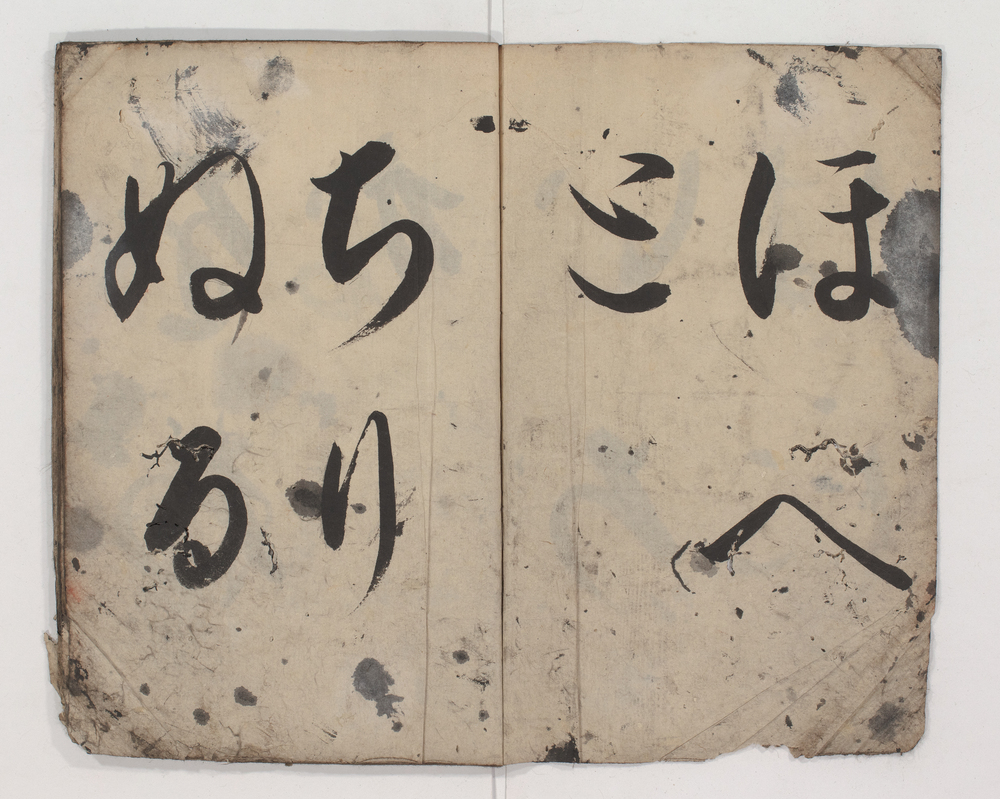 ほへ
と
ちり
ぬる